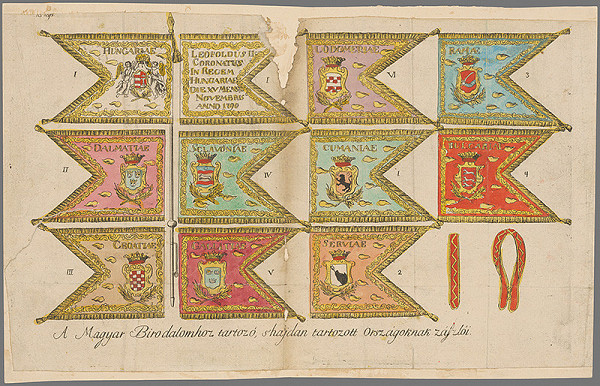 HUNGARIAE
I
LEOPOLDUS II
CORONATUS
IN REGEM
HUNGARIAE
DIE XV MENSIS
NOVEMBRIS
ANNO 1790
I
LODOMERIAE
VI
RAMAE
3
DALMATIAE
II
SCLAVONIAE
IV
CUMANIAE
1
BULGARIAE
4
CROATIAE
III
V
SERVIAE
2
A Magyar Birodalomhoz tartozó, s hajdan tartozott Országoknak zászlói.